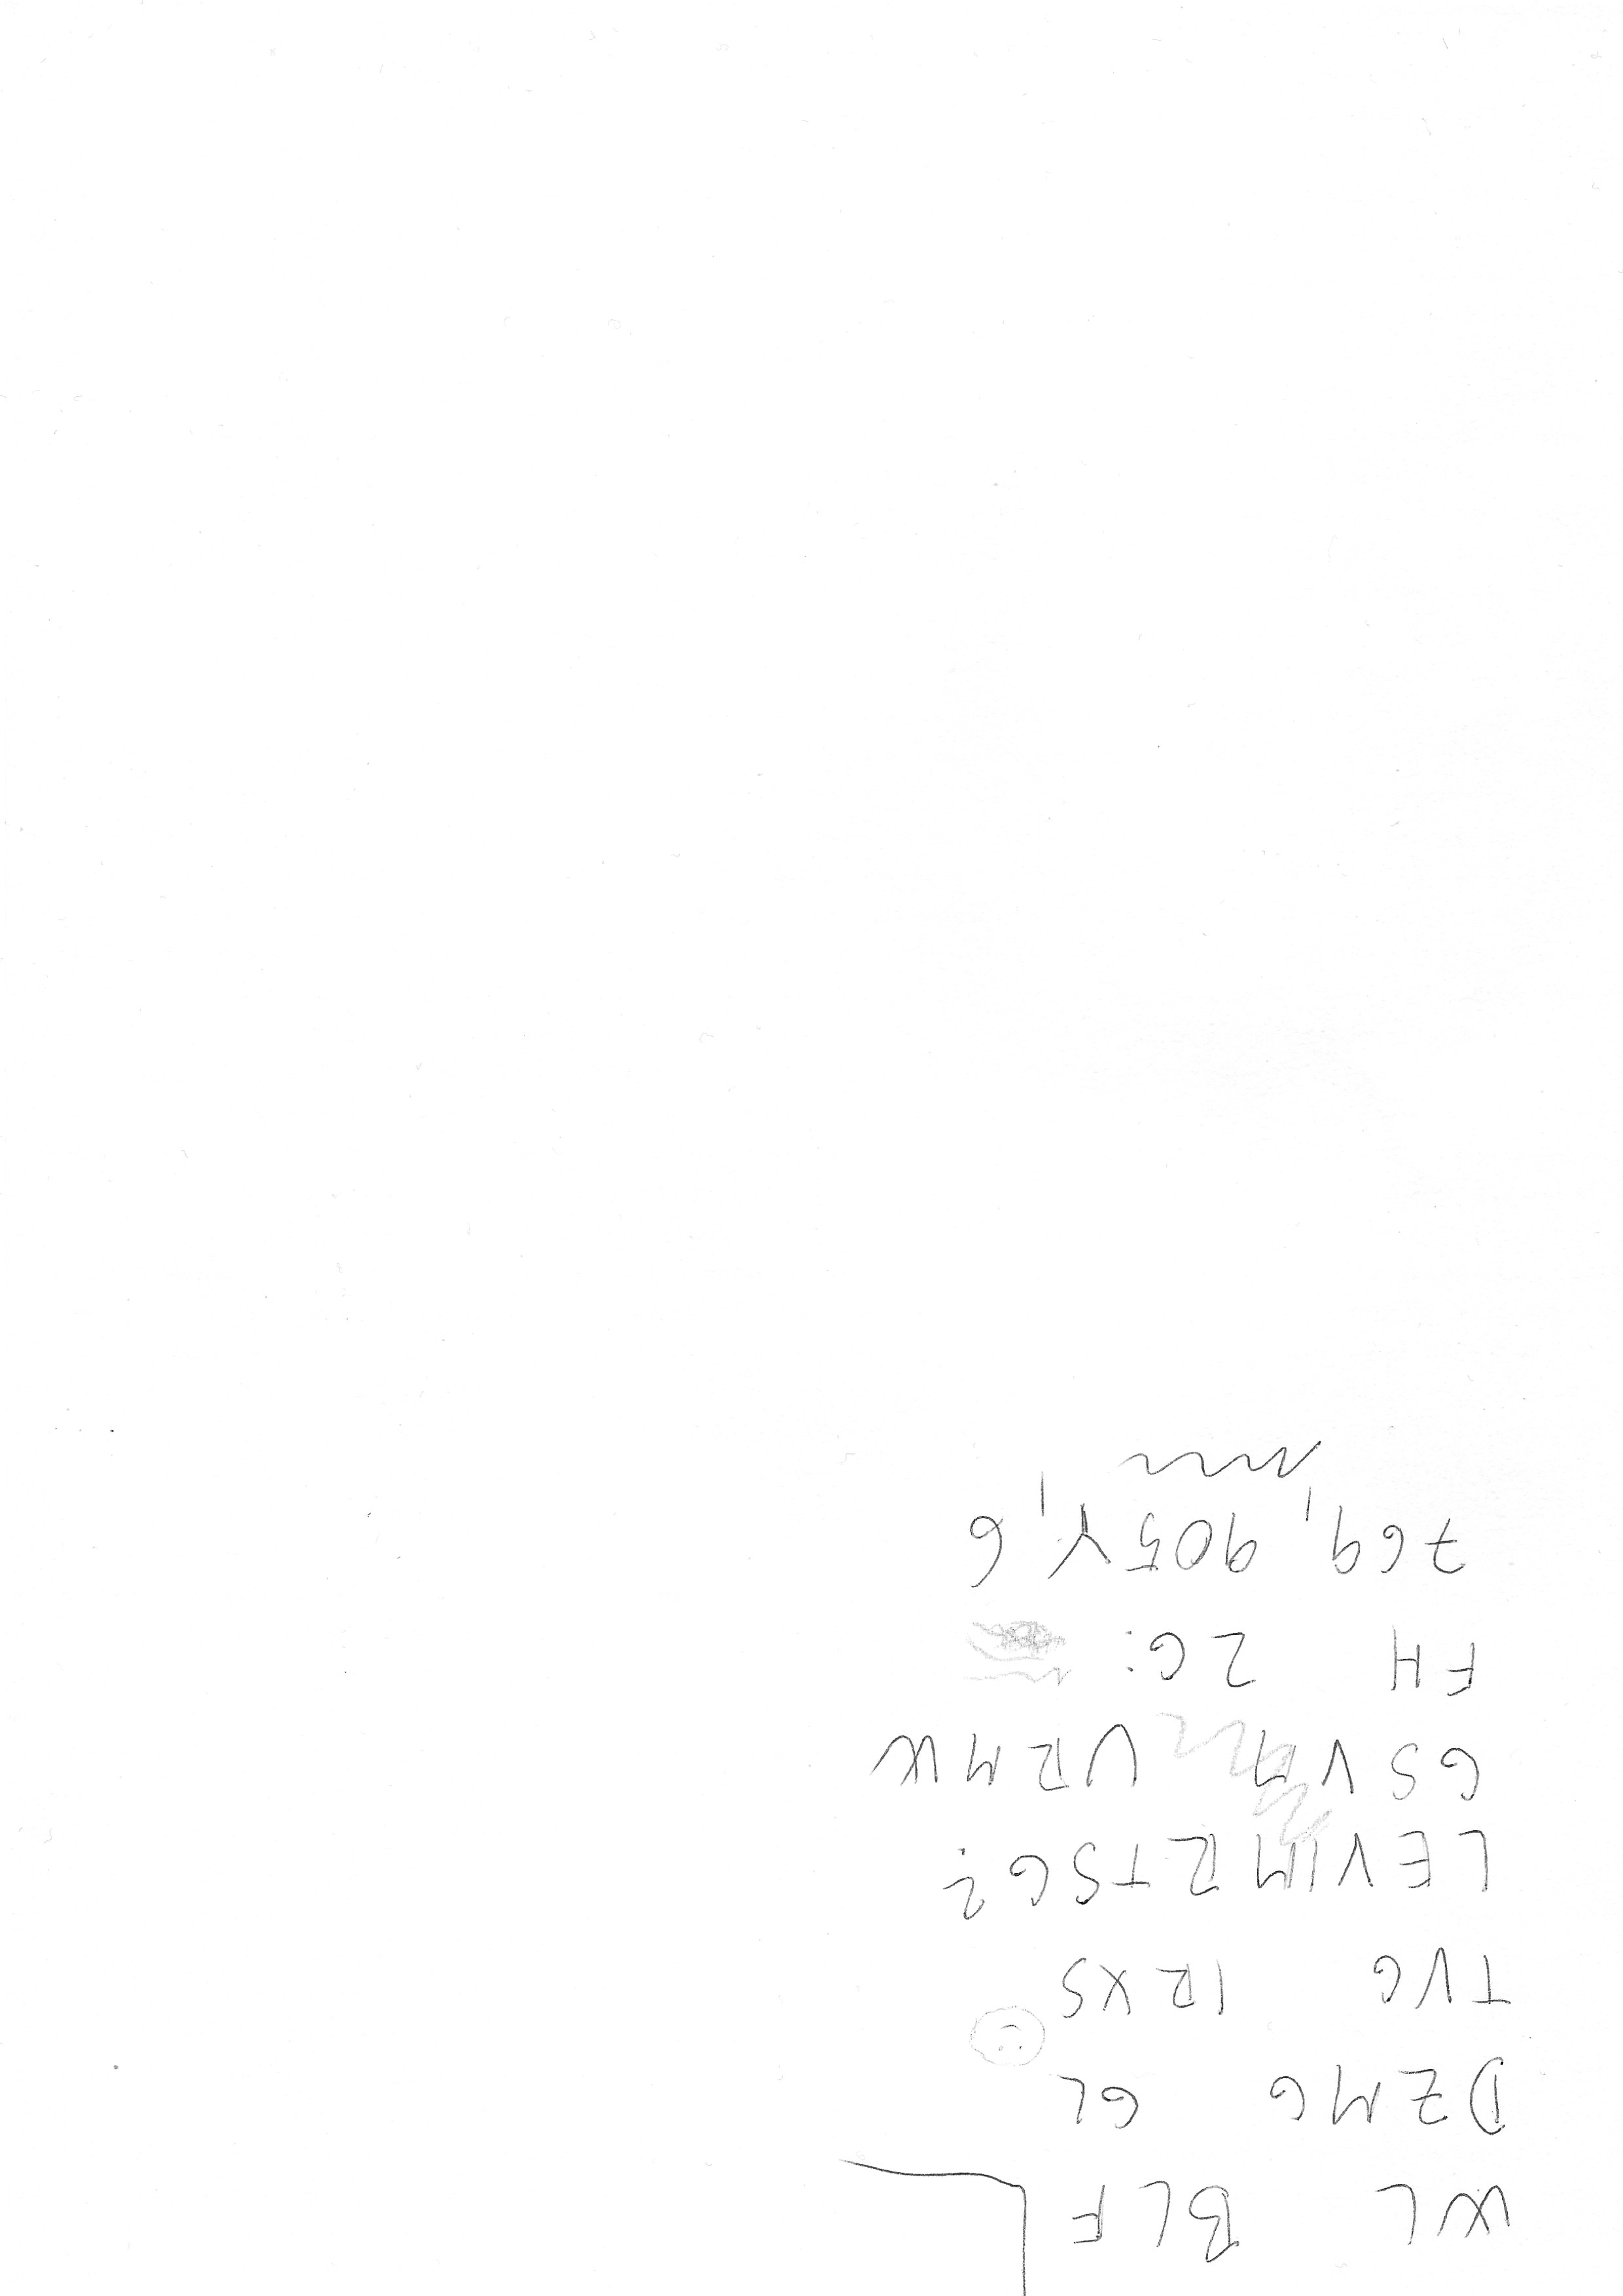 WL BLF
DZMG GL
TVG IRXS
LEVIMRTSG?
GSVM URMW
FH ZG:
769, 905Y, 6